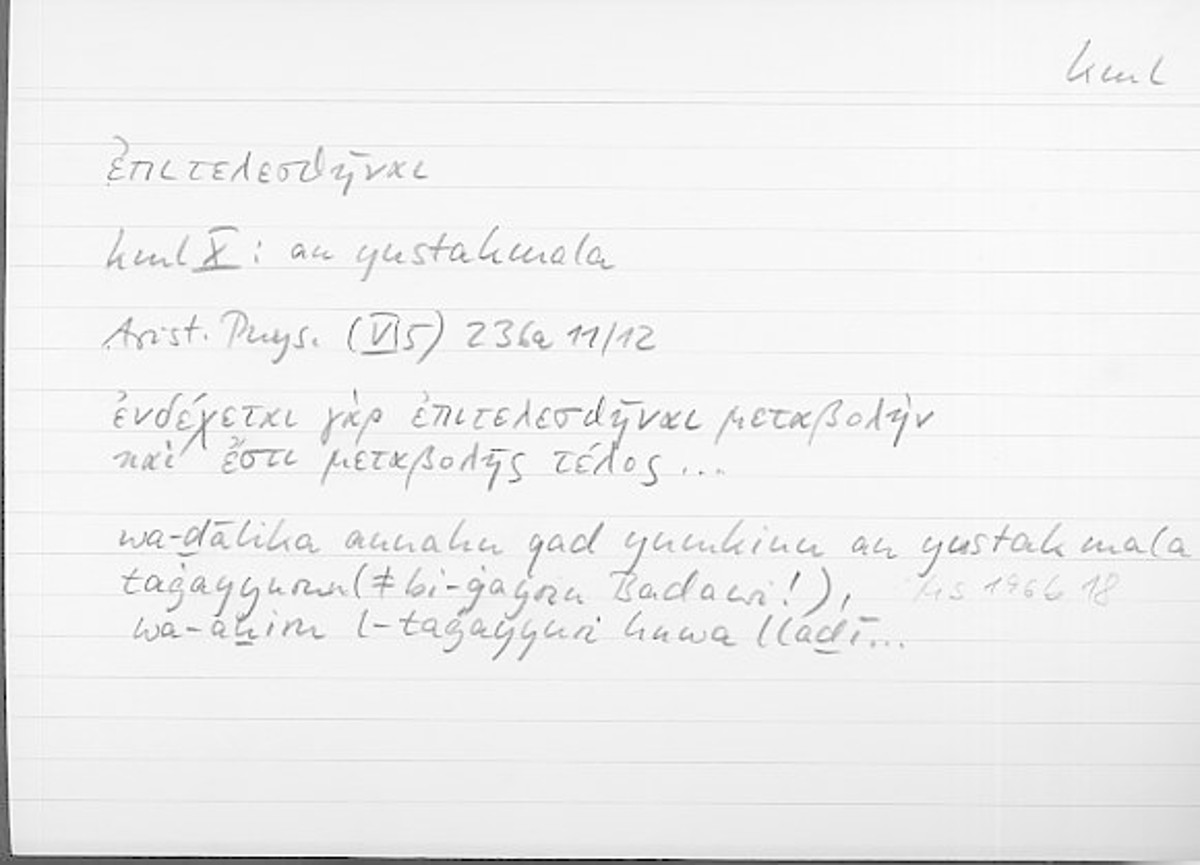 kml
ἐπιτελεσθῆναι
kml X: an yustakmala
Arist. Phys. (VI5) 236a 11/12
ἐνδέχεται γὰρ ἐπιτελεσθῆναι μεταβολὴν
καὶ ἔστι μεταβολῆς τέλος ...
wa-ḏālika annahu qad yumkinu an yustakmala
taġayyurun (≠ bi-ġayrin Badawi!), Hs 196b 18
wa-āḫiru l-taġayyuri huwa llaḏī...